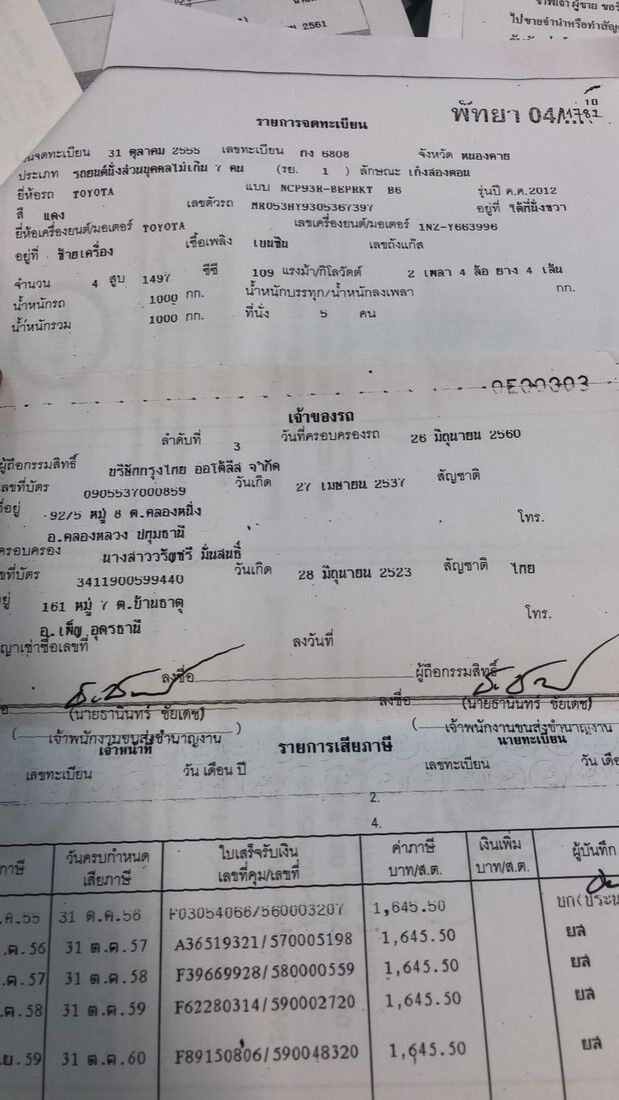 2561
ไปขายจำนำหรือทำสัญญ
พัทยา 04/11782
10
รายการจดทะเบียน
วันจดทะเบียน 31 ตุลาคม 2555 เลขทะเบียน กง 6808 จังหวัด หนองคาย
ประเภท รถยนต์นั่งส่วนบุคคลไม่เกิน 7 คน (รย. 1 ) ลักษณะ เก๋งสองตอน
ยี่ห้อรถ TOYOTA แบบ NCP93R-BEPRKT B6 รุ่นปี ค.ศ.2012
สี แดง เลขตัวรถ MR053HY9305367397 อยู่ที่ ใต้ที่นั่งขวา
ยี่ห้อเครื่องยนต์/มอเตอร์ TOYOTA เลขเครื่องยนต์/มอเตอร์ 1NZ-Y663996
อยู่ที่ ซ้ายเครื่อง เชื้อเพลิง เบนซิน เลขถังแก๊ส
จำนวน 4 สูบ 1497 ซีซี 109 แรงม้า/กิโลวัตต์ 2 เพลา 4 ล้อ ยาง 4 เส้น
น้ำหนักรถ 1000 กก. น้ำหนักบรรทุก/น้ำหนักลงเพลา กก.
น้ำหนักรวม 1000 กก. ที่นั่ง 5 คน
เจ้าของรถ
ลำดับที่ 3 วันที่ครอบครองรถ 26 มิถุนายน 2560
ผู้ถือกรรมสิทธิ์ บริษัทกรุงไทย ออโต้ลีส จำกัด
เลขที่บัตร 0905537000859 วันเกิด 27 เมษายน 2537 สัญชาติ
ที่อยู่ 92/5 หมู่ 8 ต.คลองหนึ่ง
อ.คลองหลวง ปทุมธานี โทร.
ครอบครอง นางสาววรัญชรี มั่นสนธิ์
ที่บัตร 3411900599440 วันเกิด 28 มิถุนายน 2523 สัญชาติ ไทย
อยู่ 161 หมู่ 7 ต.บ้านธาตุ
อ.เพ็ญ อุดรธานี โทร.
ญาเช่าซื้อเลขที่ ลงวันที่
ลงชื่อ ผู้ถือกรรมสิทธิ์
ลงชื่อ
(นายธานินทร์ ชัยเดช) (นายธานินทร์ ชัยเดช)
เจ้าพนักงานขนส่งชำนาญงาน เจ้าพนักงานขนส่งชำนาญงาน
เจ้าหน้าที่ รายการเสียภาษี นายทะเบียน
เลขทะเบียน วัน เดือน ปี เลขทะเบียน วัน เดือ
2.
4.
ภาษี วันครบกำหนด ใบเสร็จรับเงิน ค่าภาษี เงินเพิ่ม ผู้บันทึก
เสียภาษี เลขที่คุม/เลขที่ บาท/ส.ต. บาท/ส.ต.
.ค.55 31 ต.ค.56 F03054066/560003207 1,645.50
.ค.56 31 ต.ค.57 A36519321/570005198 1,645.50 ยส
.ค.57 31 ต.ค.58 F39669928/580000559 1,645.50 ยส
.ค.58 31 ต.ค.59 F62280314/590002720 1,645.50 ยส
.ย.59 31 ต.ค.60 F89150806/590048320 1,645.50 ยส